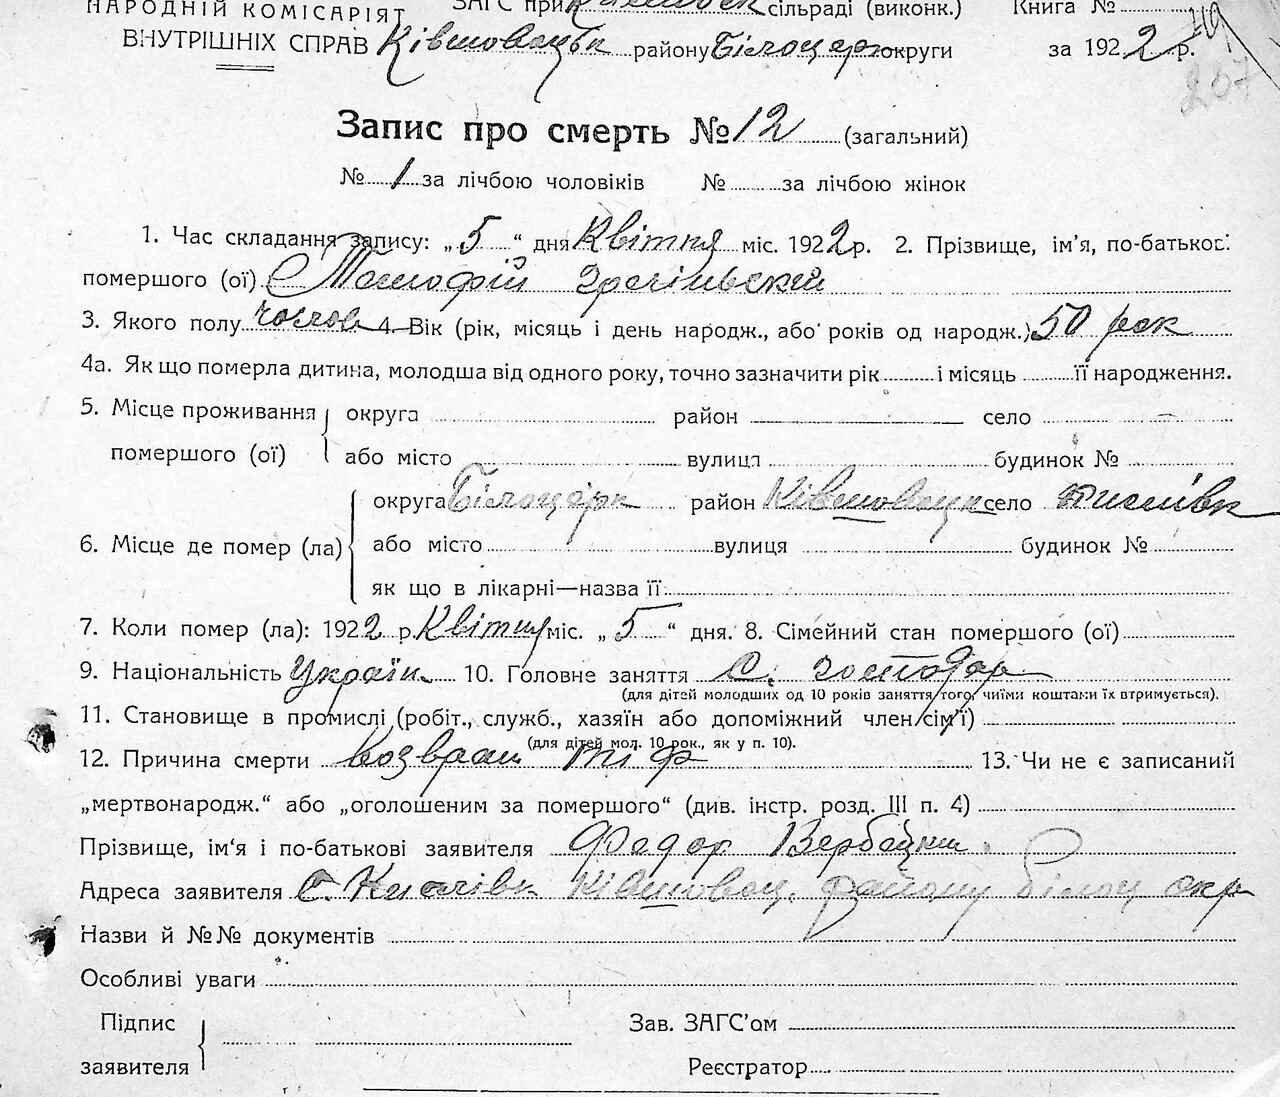 НАРОДНІЙ КОМІСАРІЯТ ЗАГС при сільраді (виконк.) Книга №
ВНУТРІШНІХ СПРАВ Ківшовацьк району Білоцерк округи за 1922 р.
207
Запис про смерть № 12 (загальний)
№ 1 за лічбою чоловіків № за лічбою жінок
1. Час складання запису: „ 5 “ дня Квітня міс. 1922 р. 2. Прізвище, ім'я, по-батькові
помершого (ої) Тимофій
3. Якого полу чолов 4. Вік (рік, місяць і день народж., або років од народж.) 50 рок
4а. Як що померла дитина, молодша від одного року, точно зазначити рік і місяць її народження.
5. Місце проживання округа район село
помершого (ої) або місто вулиця будинок №
округа Білоцерк район Ківшовацьк село
6. Місце де помер (ла) або місто вулиця будинок №
як що в лікарні—назва її:
7. Коли помер (ла): 1922 р. Квітня міс. „ 5 “ дня. 8. Сімейний стан помершого (ої)
9. Національність Україн. 10. Головне заняття С. господар
(для дітей молодших од 10 років заняття того, чиїми коштами їх втримується).
11. Становище в промислі (робіт., служб., хазяїн або допоміжний член сім'ї)
(для дітей мол. 10 рок., як у п. 10).
12. Причина смерти возврат тіф 13. Чи не є записаний
„мертвонародж.“ або „оголошеним за помершого“ (див. інстр. розд. III п. 4)
Прізвище, ім'я і по-батькові заявителя Федор Вербецкий
Адреса заявителя с. Ківшовац. району білоц окр
Назви й №№ документів
Особливі уваги
Підпис Зав. ЗАГС'ом
заявителя Реєстратор